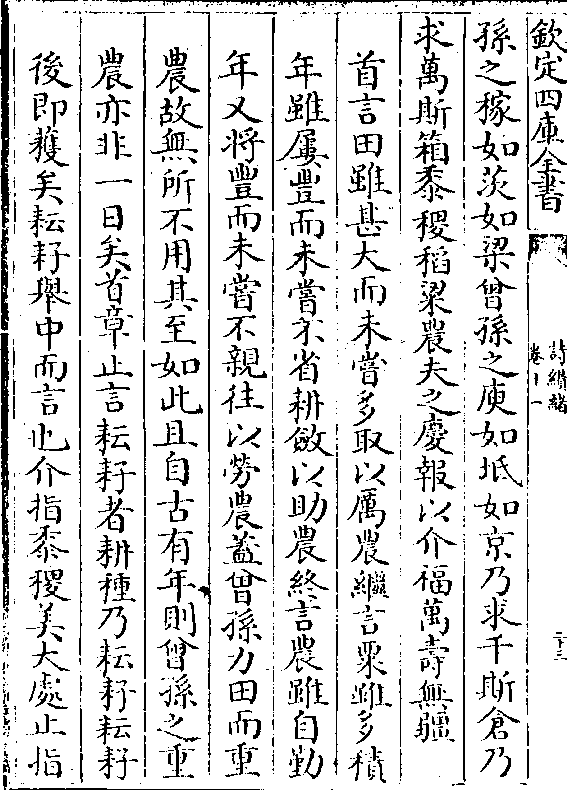 欽定四庫全書
詩纘緒
卷十一
二十三
孫之稼如茨如梁曾孫之庾如坻如京乃求千斯倉乃
求萬斯箱黍稷稻粱農夫之慶報以介福萬壽無疆
首言田雖甚大而未嘗多取以厲農繼言粟雖多積
年雖屢豐而未嘗不省耕斂以助農終言農雖自勤
年又將豐而未嘗不親往以勞農蓋曾孫力田而重
農故無所不用其至如此且自古有年則曾孫之重
農亦非一日矣首章止言耘耔者耕種乃耘耔耘耔
後即穫矣耘耔舉中而言也介指黍稷美大處止指